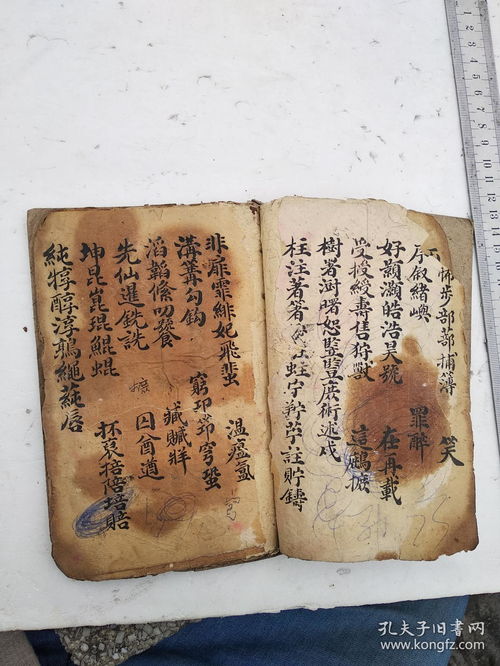 怖步部蔀捕簿
笑
序叙緒嶼
罪醉
好顥灝皓浩昊號
在再載
受授綬壽售狩獸
這鷓摭
樹署澍曙恕竪豎庶術述戍
柱注著著住蛀宇羜苧註貯鑄
非扉霏緋妃飛蜚
溫瘟氲
溝篝勾鈎
窮卭筇穹蛩
滔韜絛叨饕
藏贜牂
先仙暹銑詵
摭
囚酋遒
坤昆崑琨鯤蜫
純犉醇淳鶉蓴唇
抔裒掊陪培賠
孔夫子旧书网
www.kongfz.com